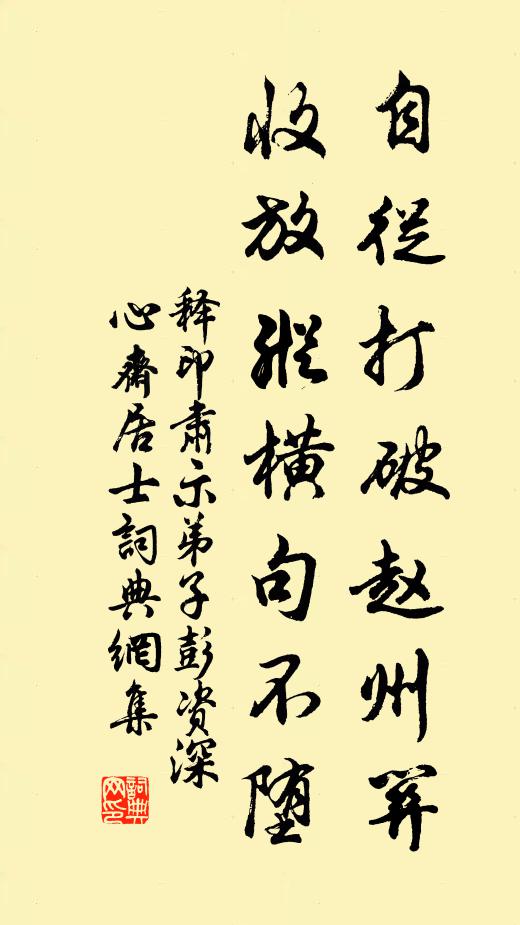 自從打破赵州關
收放縱橫句不堕
释印肅示弟子彭資深
心齋居士詞典網集
詞典网印